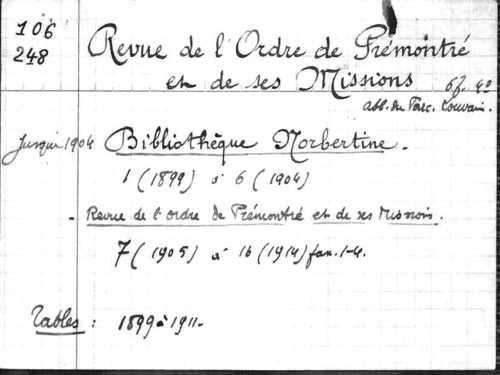 106
248
Revue de l'Ordre de Prémontré
et de ses Missions 6f. 4º
abb. du Parc. Louvain.
jusqu'1904 Bibliothèque Norbertine.
1 (1899) à 6 (1904)
- Revue de l'ordre de Prémontré et de ses Missions.
7 (1905) à 16 (1914) fasc. 1-4.
Tables : 1899 à 1911.